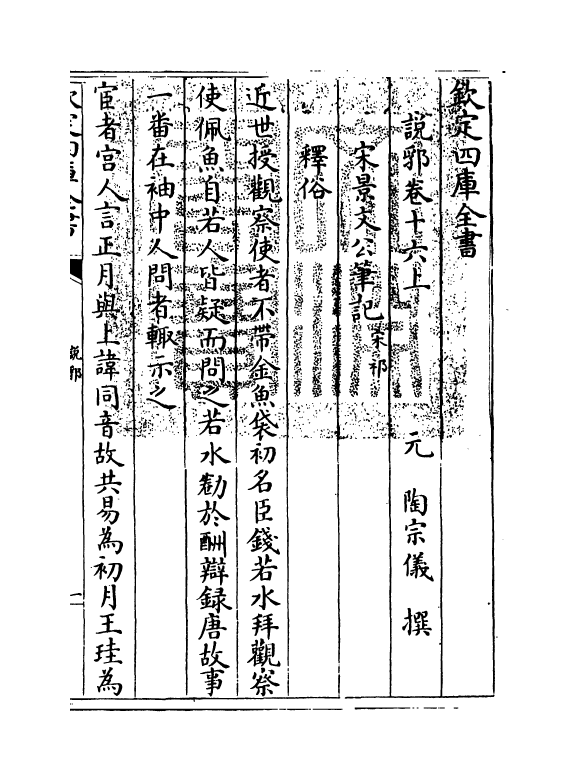 欽定四庫全書
說郛卷十六上
元 陶宗儀 撰
宋景文公筆記 宋祁
釋俗
近世授觀察使者不帶金魚袋初名臣錢若水拜觀察
使佩魚自若人皆疑而問之若水勌於酬辯録唐故事
一番在袖中人問者輙示之
宦者宫人言正月與上諱同音故共易為初月王珪為
欽定四庫全書
說郛
一